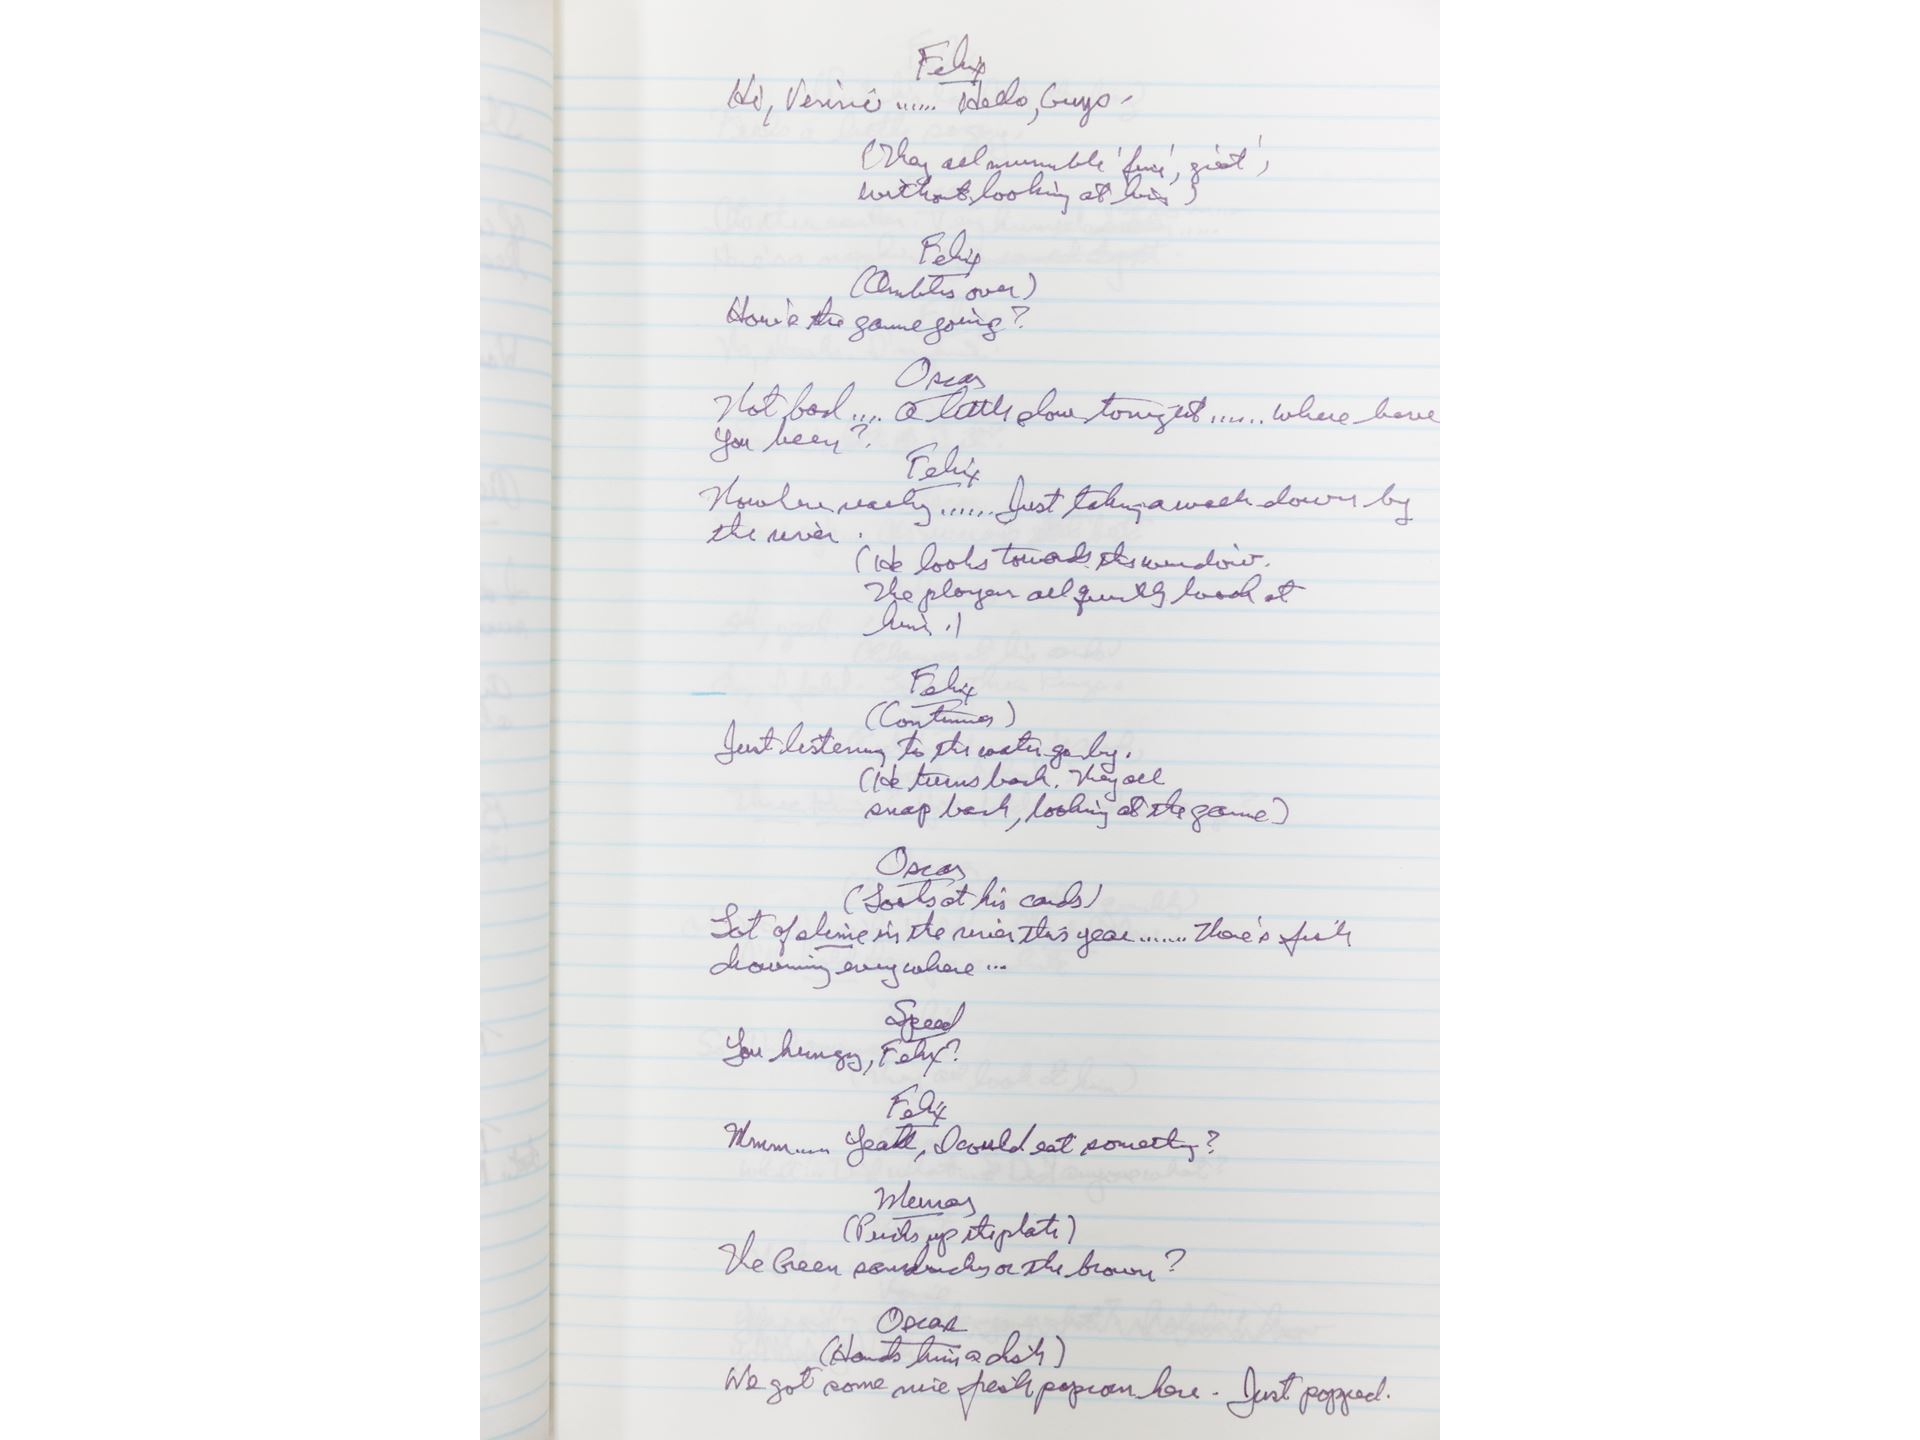 Felix
Hi, Vinnie ...... Hello, Guys.
(They all mumble 'fine', 'great',
without looking at him)
Felix
(Ambles over)
How's the game going?
Oscar
Not bad .... a little slow tonight ...... where have
you been?
Felix
Nowhere really ...... Just taking a walk down by
the river.
(He looks towards the window.
The players all quickly look at
him.)
Felix
(Continues)
Just listening to the water go by.
(He turns back. They all
snap back, looking at the game)
Oscar
(Looks at his cards)
Lot of slime in the river this year ....... There's fish
drowning everywhere ...
Speed
You hungry, Felix?
Felix
Mmmm.... Yeah, I could eat something?
Murray
(Picks up the plate)
The Green sandwiches or the brown?
Oscar
(Hands him a dish)
We got some nice fresh popcorn here. Just popped.